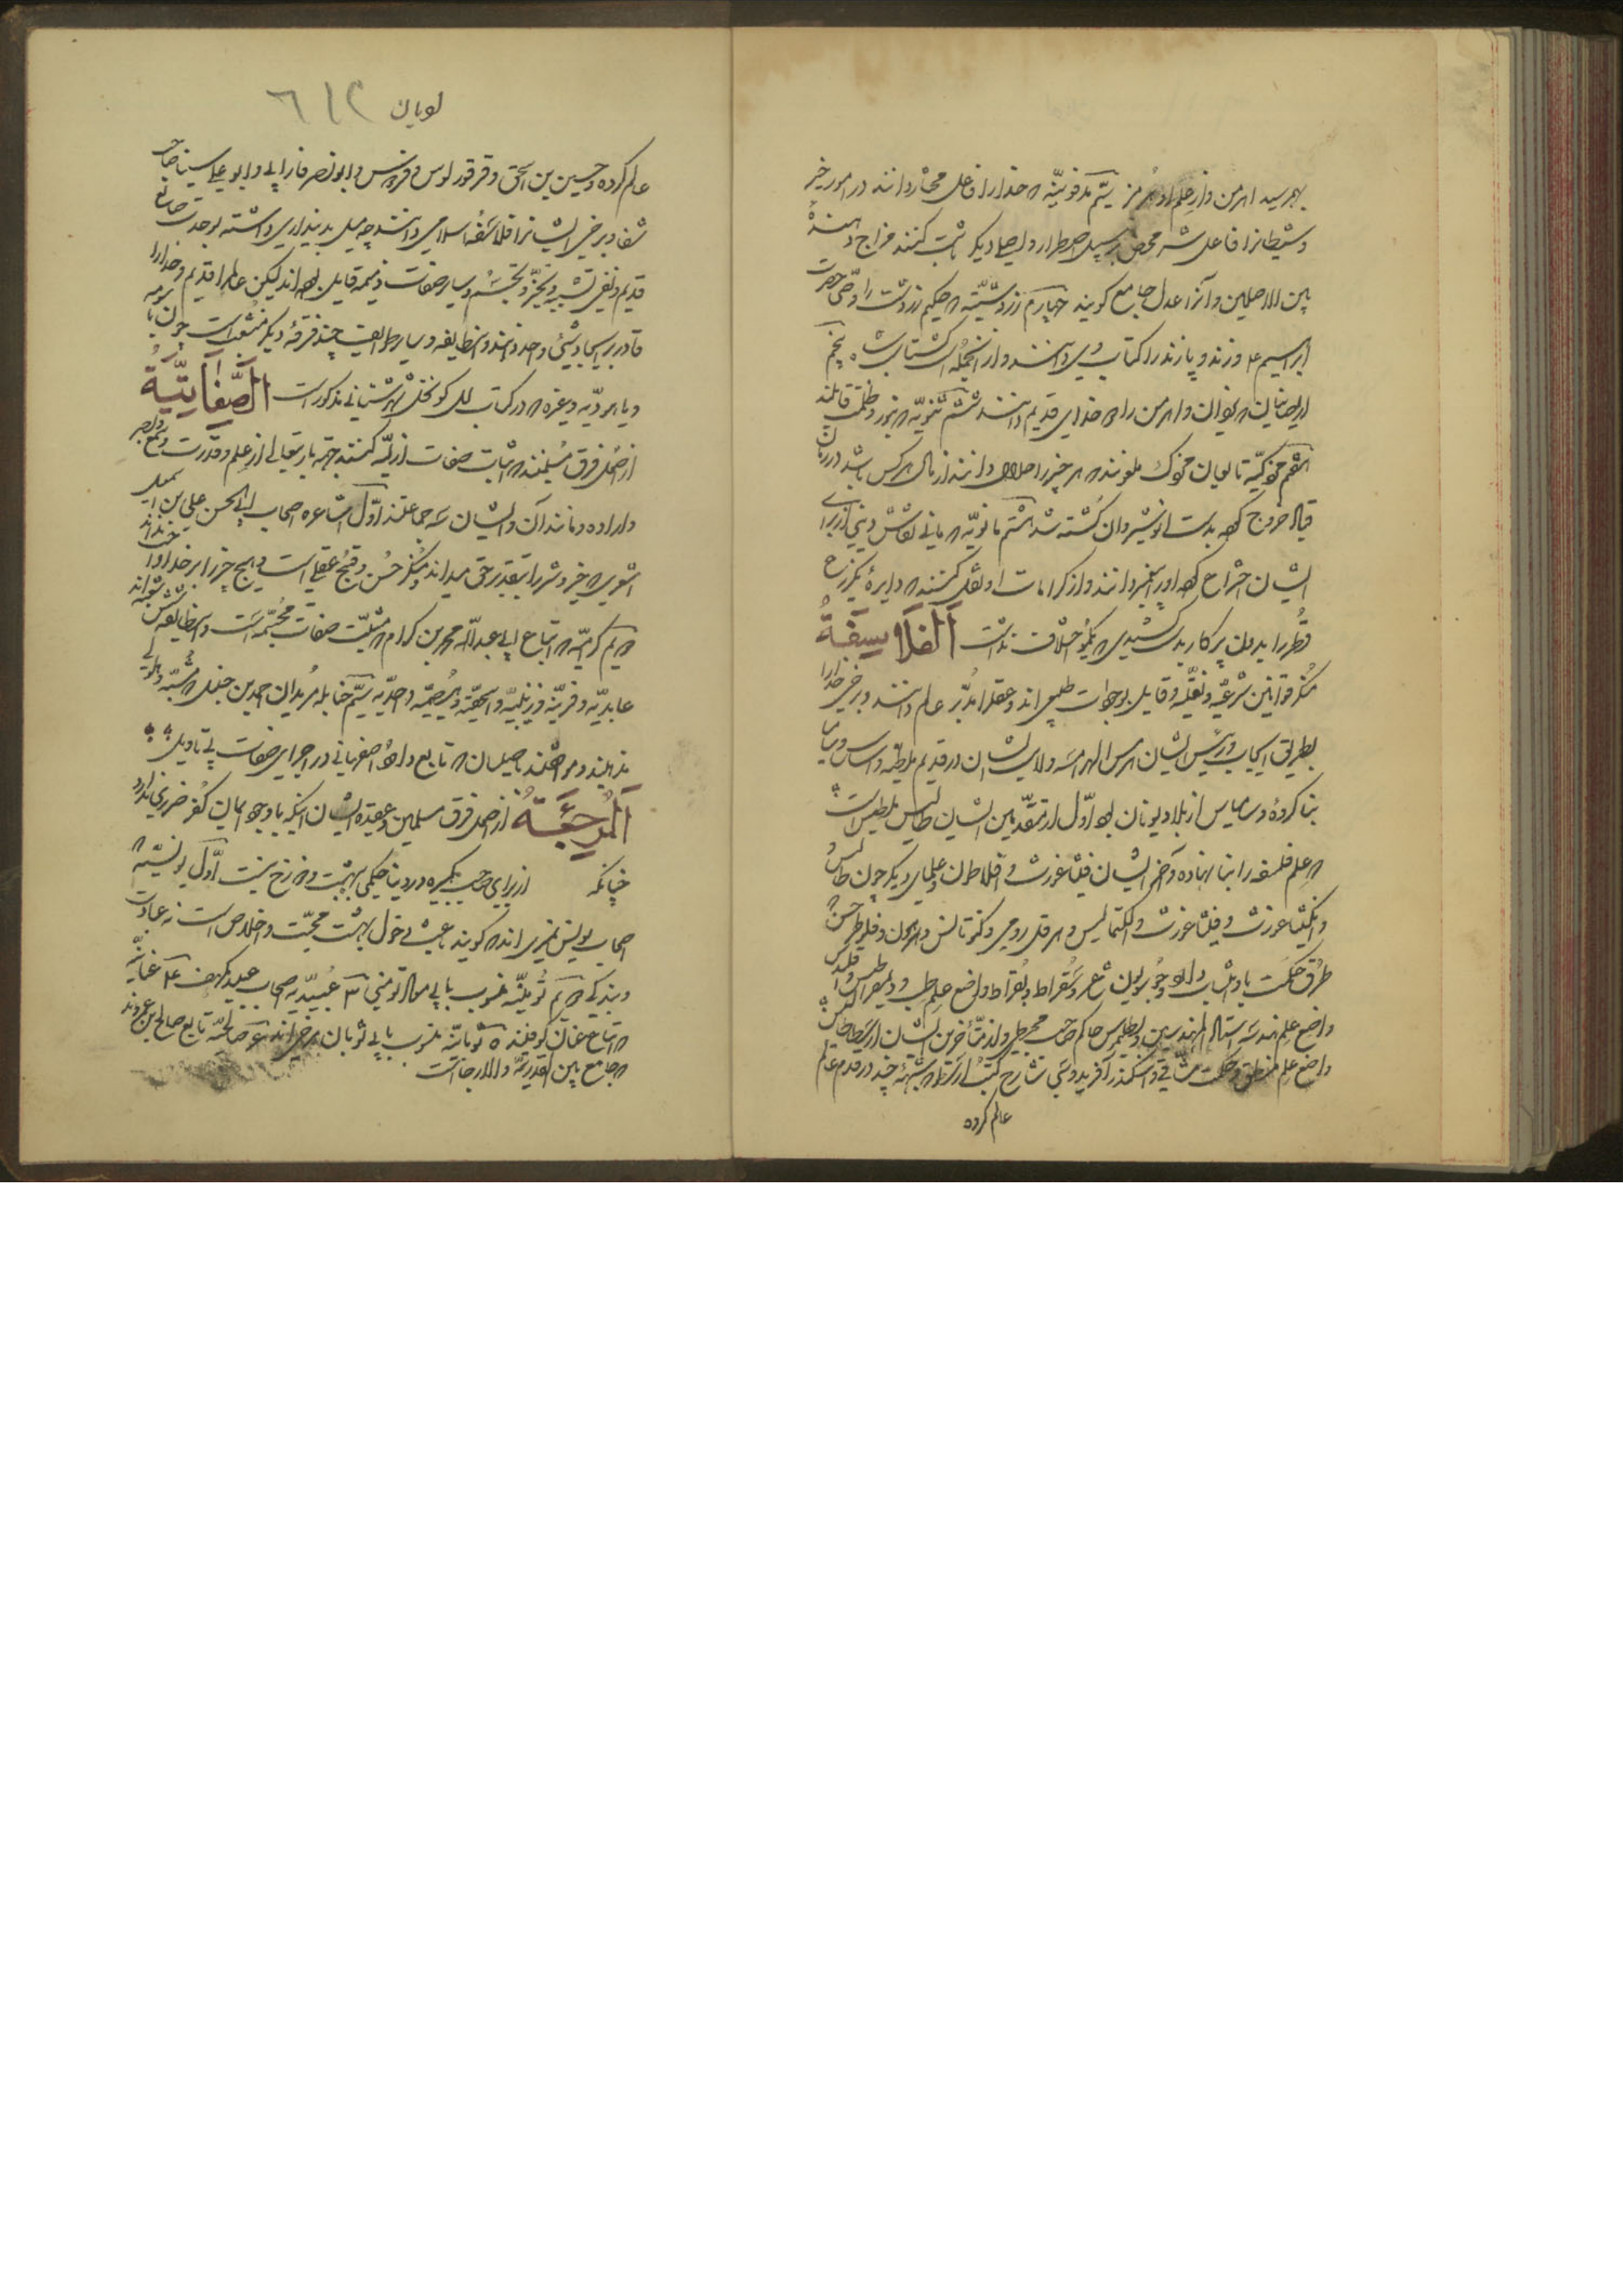 بهم رسید اهرمن و از علم او هرمز سیّم مرقونیّه که خدا را فاعل مختار دانند در امور خیر
و شیطان را فاعل شر محض بر سبیل اضطرار و اصلی دیگر ثابت کنند مزاج دهنده
بین الاصلین و آنرا عدل جامع کویند چهارم زردشتیّه که حکیم زردشت را وصیّ حضرت
ابراهیم ع و زند و پازند را کتاب وی دانند و از انجمله کشتاسب شاه پنجم
دیصانیان که یزدان و اهرمن را دو خدای قدیم دانند ششم ثنویّه که بنور و ظلمت قایلند
هفتم مزدکیّه تابعان مزدک ملعونند که هر چیز را حلال دانند از مال هر کس باشد در زمان
قباد خروج کرده بدست انوشیروان کشته شد هشتم مانویّه که مانی نقاش دینی از برای
ایشان اختراع کرده او را پیغمبر دانند و از کرامات او نقل کنند که دایرهٔ یکزرع
قطر را بدون پرکار بد کشیدی که یکمو اختلاف نداشت اَلفَلاسِفَةُ
منکر قوانین شرعیّه و نقلیّه و قایل بوجهات طبیعی اند و عقل را مدبّر عالم دانند و برخی خدا را
بطریق ایجاب و رئیس ایشان هرمس الهرامسه و لادی ایشان در قدیم ملطیّه و اساس و سامیا
بنا کرده و سامیاس از بلاد یونان بوده اوّل از متقدّمین ایشان طالیس ملطی است
که علم فلسفه را بنا نهاده و آخر ایشان فیثاغورث و افلاطون و علمای دیکر چون طالیس
و انکساغورث و فیثاغورث و انکسمالیس و هرقل رومی
طرق حکمت باو منسوب شاعر و سقراط و بقراط واضع علم طب و دیمقراطیس و اقلیدس
واضع علم هندسه استاد المهندسین بطلمیوس حاکم صاحب مجسطی و از متأخرین ایشان ارسطاطالیس
واضع علم منطق و حکمت مشّائی و اسکندر افریدوسی شارح کتب ارسطو که شبههٔ چند در قدم عالم
عالم کرده
لویان ٦١٢
عالم کرده و حسین بن اسحق و فرفوریوس و ابونصر فارابی و ابو علی سینا صاحب
شفا و برخی ایشانرا فلاسفهٔ اسلامی دانند چه میل بدینداری داشته بوحدت صانع
قدیم و نفی تشبیه و تحیّز و تجسّم و سایر صفات ذمیمه قایل بوده اند لیکن عالم را قدیم و خدا را
قادر بر ایجاد شیئ واحد دانند و این طایفه و سایر طوایف چند فرقهٔ دیکر منشعبست چون
و یا هودیّه و غیره که در کتاب ملل و نحل شهرستانی مذکورست الصِّفَاتِیَّةُ
از جمله فرق مسلمینند که اثبات صفات ازلیّه کنند جهة باریتعالی از علم و قدرت و سمع و بصر
و اراده و مانند آن و ایشان سه جماعتند اوّل اشاعره اصحاب ابی الحسن علی بن اسمعیل
اشعری که خیر و شر را بتقدیر حق میدانند و منکر حُسن و قبح عقلی است و هیچ چیز را بر خدا واجب نداند
دویم کرامیّه که اتباع ابی عبدالله محمد بن کرام که مثبت صفات مجسّمه است و این طایفه شش شعبه اند
عابدیّه و زرینیّه و اسحقیّه و هیصمیّه و واحدیّه سیّم حنابله مریدان احمد بن حنبل که مشبّه
مذهبند و موافقند با ایشان که تابع داود اصفهانی در اجرای صفات بی تاویل
اَلمُرجِئَةُ از جمله فرق مسلمین و عقیده ایشان اینکه با وجود ایمان کفر ضرری ندارد
چنانکه از برای صاحب کبیره در دنیا حکمی ببهشت و دوزخ نیست اوّل یونسیّه
اصحاب یونس نمیری اند که کویند باعث دخول بهشت محبّت و اخلاص است نه عبادت
و بندکی دویم تومنیّه منسوب بابی معاذ تومنی ۳ عبیدیّه اصحاب عبید مکتئب ۴ غسّانیّه
که اتباع غسّان کوفیند ۵ ثوبانیّه منسوب بابی ثوبان مرجی اند ۶ صالحیّه تابع صالح بن عمروند
که جامع بین القدریّه و الارجا است